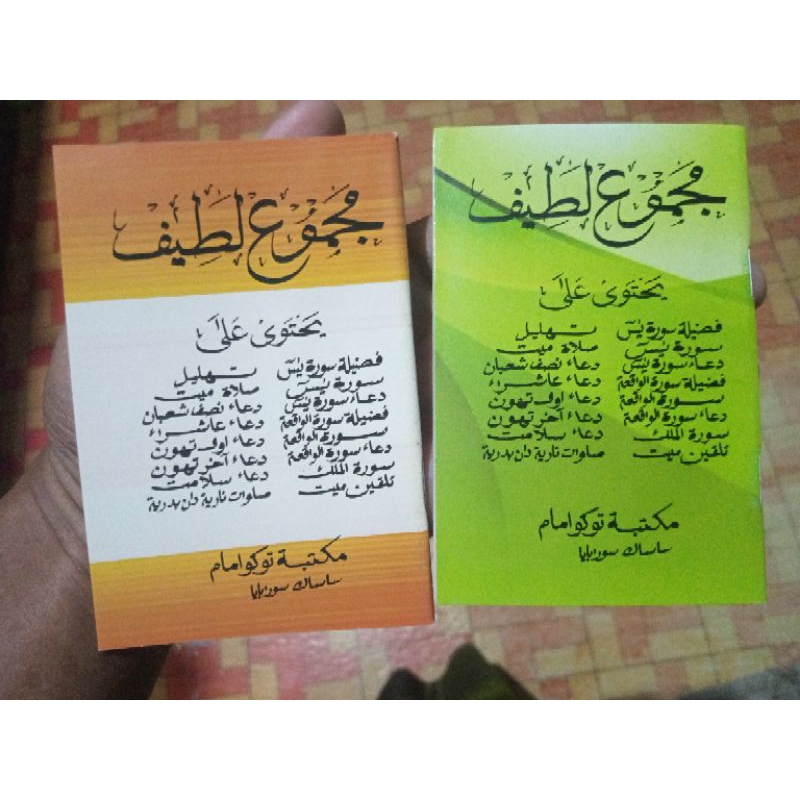 مجموع لطيف
يحتوى على
فضيلة سورة يٰسٓ تهليل
سورة يٰسٓ صلاة ميت
دعاء سورة يٰسٓ دعاء نصف شعبان
فضيلة سورة الواقعة دعاء عاشراء
سورة الواقعة دعاء اول تهون
دعاء سورة الواقعة دعاء آخر تهون
سورة الملك دعاء سلامت
تلقين ميت صلوات نارية دان بدرية
مكتبة توكو امام
ساساك سورابايا
مجموع لطيف
يحتوى على
فضيلة سورة يٰسٓ تهليل
سورة يٰسٓ صلاة ميت
دعاء سورة يٰسٓ دعاء نصف شعبان
فضيلة سورة الواقعة دعاء عاشراء
سورة الواقعة دعاء اول تهون
دعاء سورة الواقعة دعاء آخر تهون
سورة الملك دعاء سلامت
تلقين ميت صلوات نارية دان بدرية
مكتبة توكو امام
ساساك سورابايا